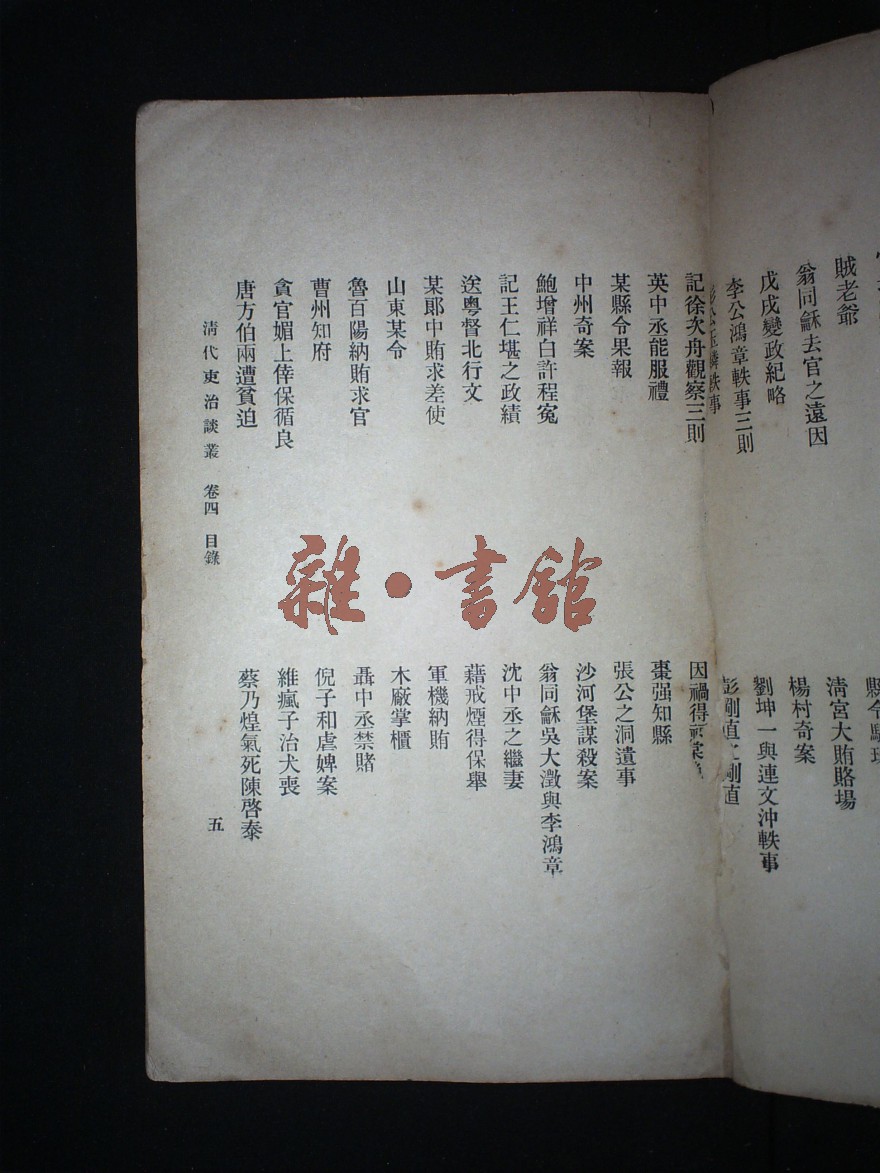 賊老爺
翁同龢去官之遠因
戊戌變政紀略
李公鴻章軼事三則
軼事
縣令
淸宮大賄賂場
楊村奇案
劉坤一與連文沖軼事
彭剛直之剛直
記徐次舟觀察三則
英中丞能服禮
某縣令果報
中州奇案
鮑增祥白許程冤
記王仁堪之政績
送粵督北行文
某郞中賄求差使
山東某令
魯百陽納賄求官
曹州知府
貪官媚上倖保循良
唐方伯兩遭貧迫
因禍得
棗强知縣
張公之洞遺事
沙河堡謀殺案
翁同龢吳大澂與李鴻章
沈中丞之繼妻
藉戒煙得保舉
軍機納賄
木廠掌櫃
聶中丞禁賭
倪子和虐婢案
維瘋子治犬喪
蔡乃煌氣死陳啓泰
淸代吏治談叢 卷四 目錄
五
雜·書館